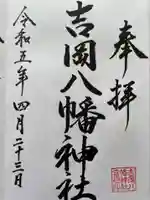 奉拝
吉岡八幡神社
令和五年四月二十三日